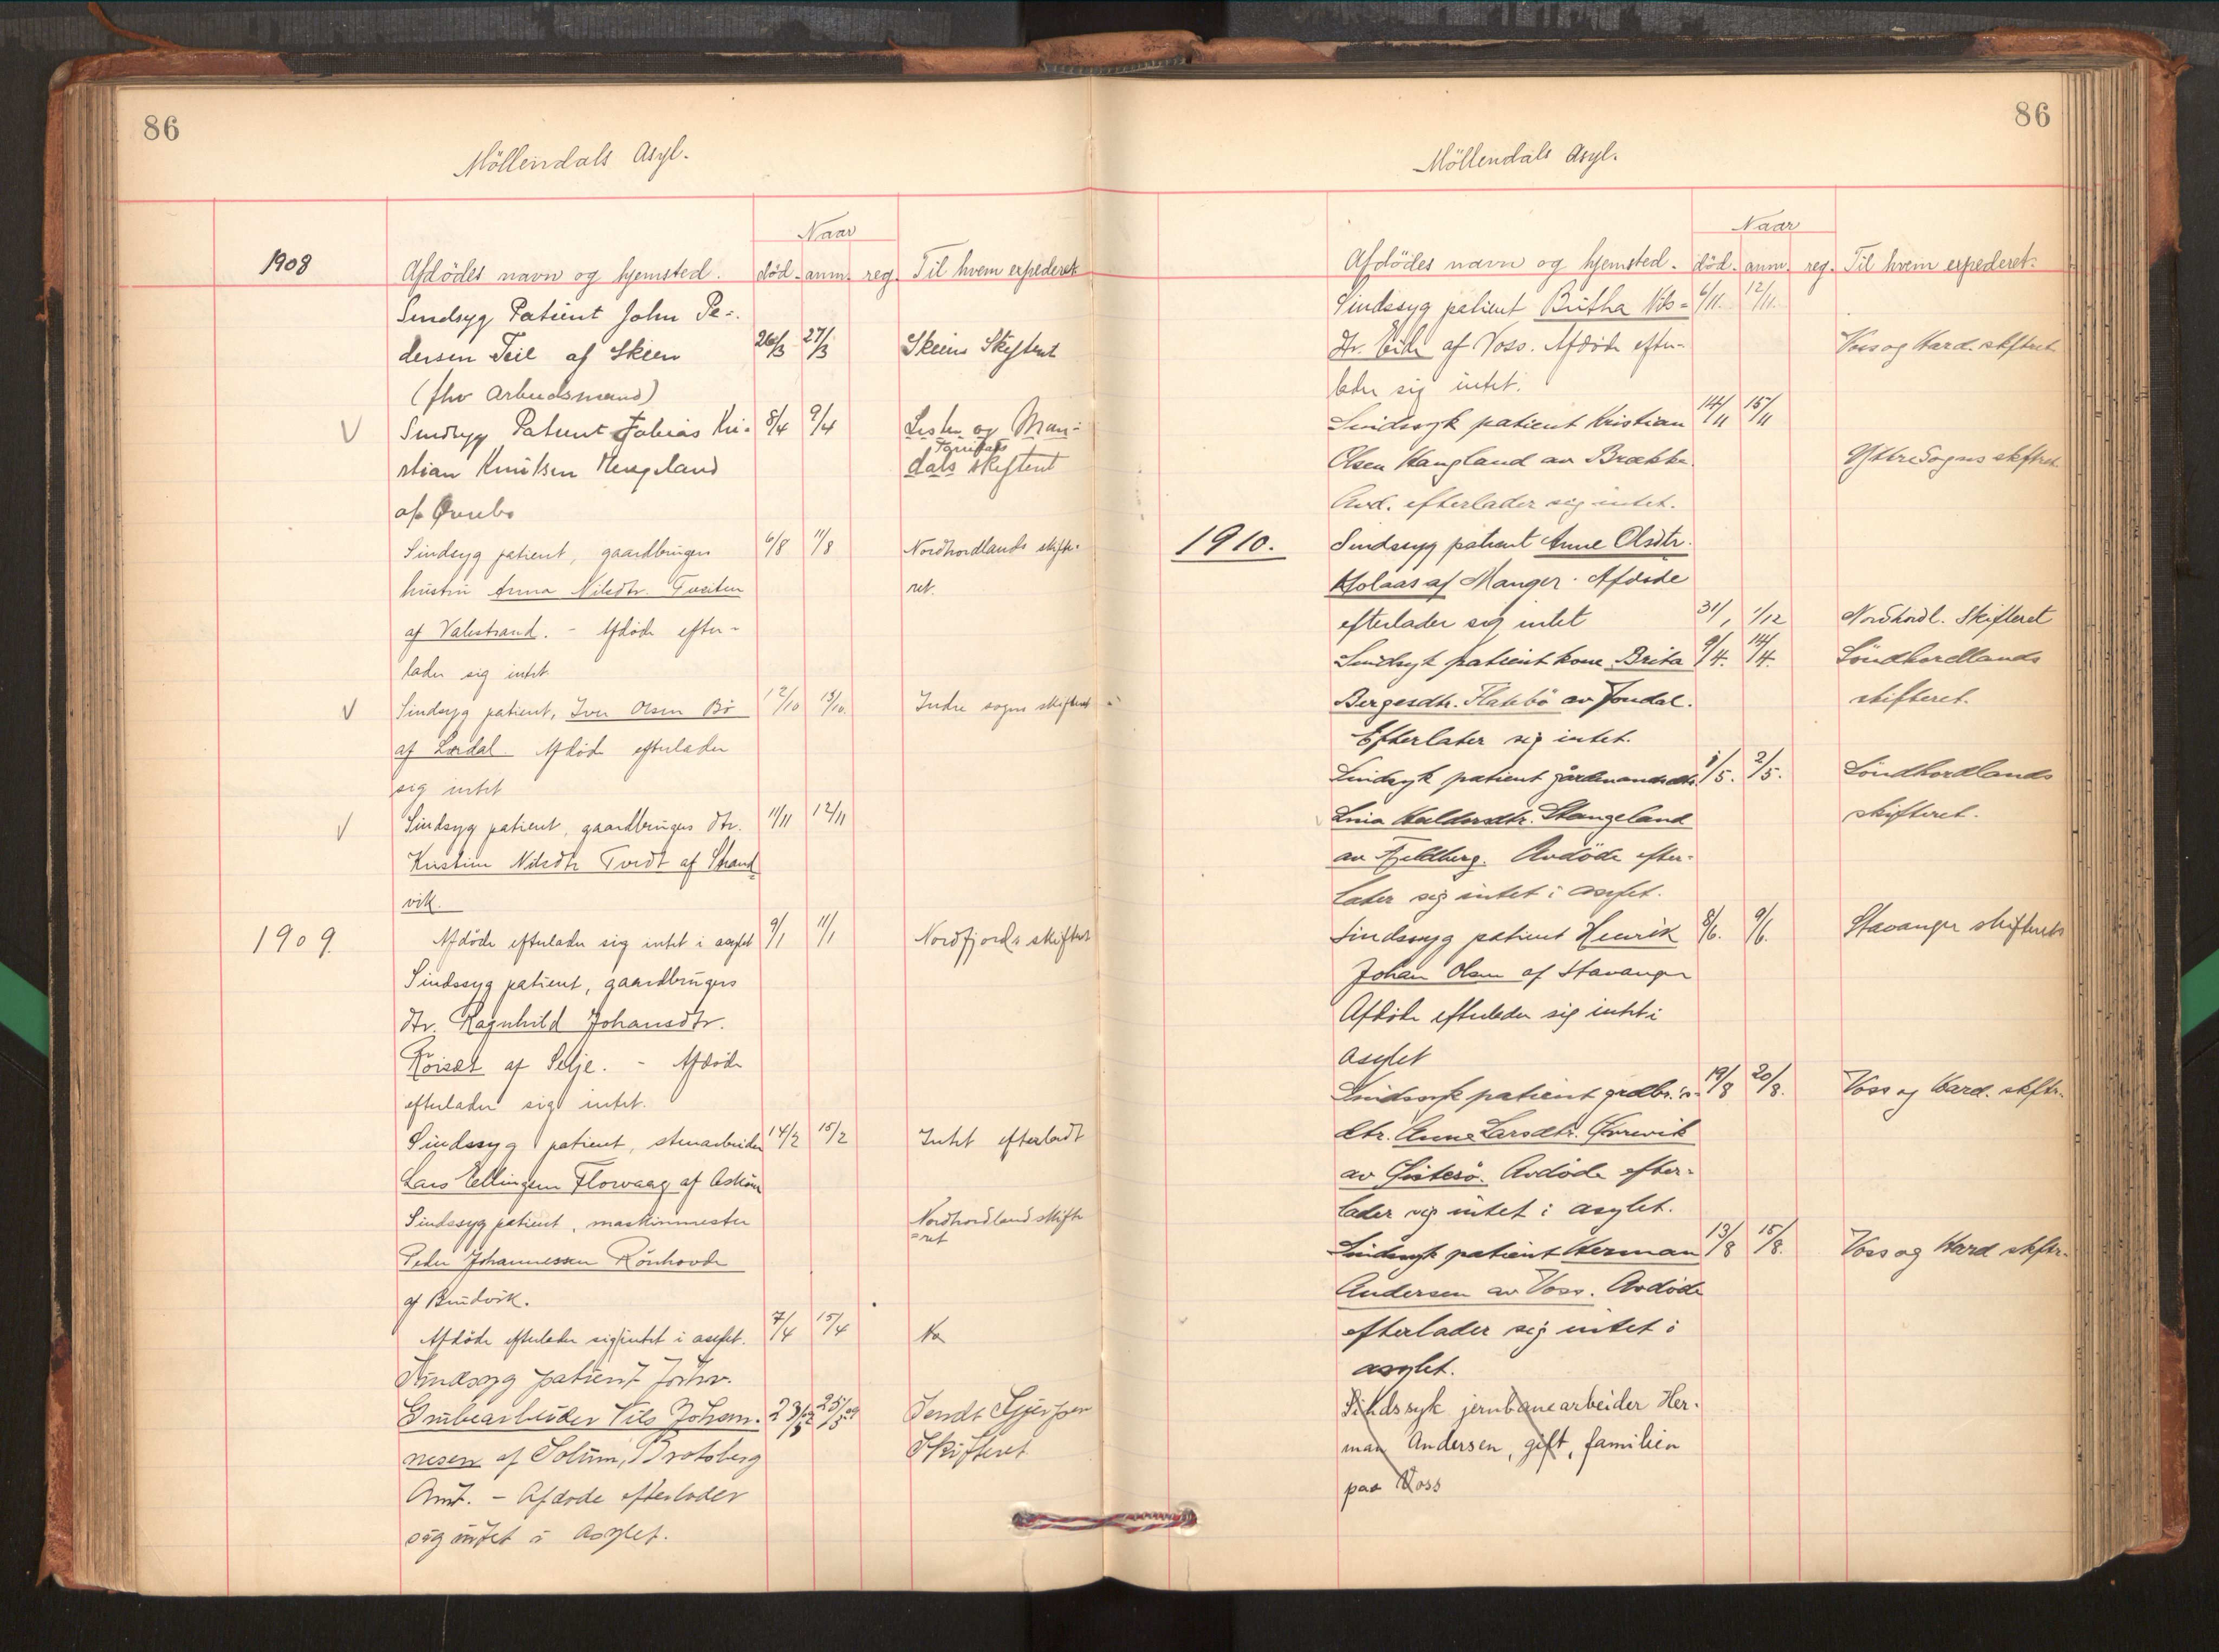 86
Möllendals Asyl.
Naar
1908
Afdödes navn og hjemsted. död. anm. reg. Til hvem expederet
Sindsyg Patient John Pe-
dersen Teie af Skien 26/3 27/3 Skiens Skifteret
(fhv Arbeidsmand)
V Sindsyg Patient Tobias Kri- 8/4 9/4 Lister og Man-
stian Knutsen Heageland dals skifteret
af Øvrebø
Sindsyg patient, gaardbrugers 6/8 11/8 Nordhordlands skifte-
hustru Anna Nilsdtr. Tveiten ret.
af Valestrand. - Afdöde efter-
lader sig intet
V Sindsyg patient, Iver Olsen Bö 12/10 13/10. Indre sogns skifteret
af Lærdal. Afdöde efterlader
sig intet
V Sindsyg patient, gaardbrugers dtr. 11/11 12/11
Kristine Nilsdtr Tvedt af Strand
vik.
1909. Afdöde efterlader sig intet i asylet 9/1 11/1 Nordfjords skifteret
Sindssyg patient, gaardbrugers
dtr. Ragnhild Johansdtr.
Röiset af Selje. - Afdöde
efterlader sig intet.
Sindssyg patient, stenarbeider 14/2 15/2 Intet efterladt
Lars Ellingsen Florvaag af Asköen
Sindssyg patient, maskinmester Nordhordland skifte
=ret
Peder Johannessen Rönhovde
af Brudvik.
Afdöde efterlader sig intet i asylet. 7/4 15/4 No
Sindssyg patient forhv.
Grubearbeider Nils Johan- 23/5 25/5 09 Sendt Gjerpen
nesen af Solum, Bratsberg Skifteret
Amt. - Afdøde efterlader
sig intet i Asylet.
86
Möllendals Asyl.
Naar
Afdödes navn og hjemsted. död. anm. reg. Til hvem expederet.
Sindssyg patient Britha Nils- 6/11. 12/11.
dtr. Eide af Voss. Afdöde efter- Voss og Hard. skftret
lader sig intet.
Sindssyk patient Kristian 14/11 15/11
Olsen Haugland av Brække. Yttre Sogns skftret
Avd. efterlader sig intet.
1910. Sindssyg patient Anne Olsdtr.
Kolaas af Manger. Afdøde
efterlader sig intet 31/1 1/12 Nordhordl. Skifteret
Sindsyk patient kone Brita 9/4. 14/4. Söndhordlands
Bergesdtr. Flatebö av Jondal. skifteret.
Efterlater sig intet.
Sindsyk patient gårdmandsdtr. 1/5. 2/5. Söndhordlands
Haldorsdtr. Stangeland skifteret.
av Fjeldberg. Avdöde efter-
later sig intet i asylet.
Sindssyg patient Henrik 8/6. 9/6. Stavanger skifteret
Johan Olsen af Stavanger
Afdöde efterlader sig intet i
asylet
Sindssyk patient grdbr.'s- 19/8 20/8. Voss og Hard. skftr.
dtr. Anne Larsdtr.
av Östesö. Avdöde efter-
lader sig intet i asylet.
Sindssyk patient Herman 13/8 15/8. Voss og Hard skftr.
Andersen av Voss. Avdöde
efterlader sig intet i
asylet.
Sindssyk jernbanearbeider Her-
man Andersen, gift, familien
paa Voss